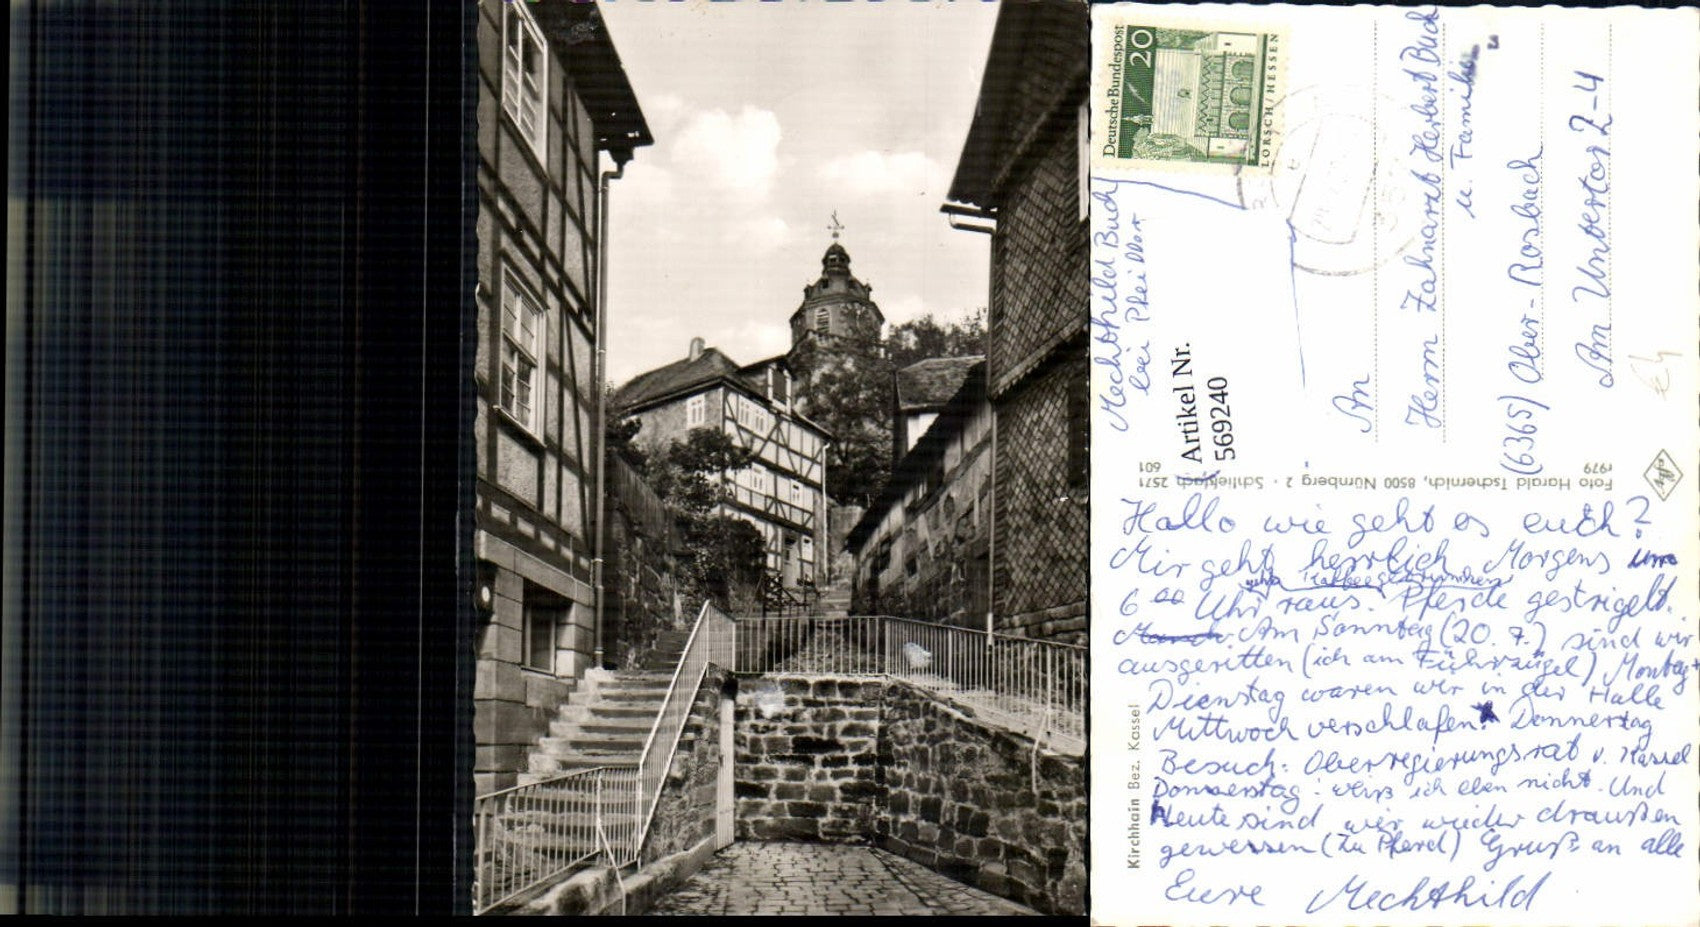 Deutsche Bundespost
20
LORSCH/HESSEN
Mechthild Buch
bei Pfeiffer
Artikel Nr.
569240
An
Herrn Zahnarzt Herbert Buch
u. Familie
(6365) Ober-Rosbach
Am Untertor 2-4
Foto Harald Tschernich, 8500 Nürnberg 2 · Schließfach 2571
r979
601
Kirchhain Bez. Kassel
Hallo wie geht es euch?
Mir geht herrlich Morgens um
6 00 Uhr raus. Pferde gestriegelt.
Am Sonntag (20. 7.) sind wir
ausgeritten (ich am Führzügel) Montag +
Dienstag waren wir in der Halle
Mittwoch verschlafen. Donnerstag
Besuch: Oberregierungsrat v. Kassel
Donnerstag: weiß ich eben nicht. Und
Heute sind wir wieder draußen
gewessen (zu Pferd) Gruß an alle
Eure Mechthild